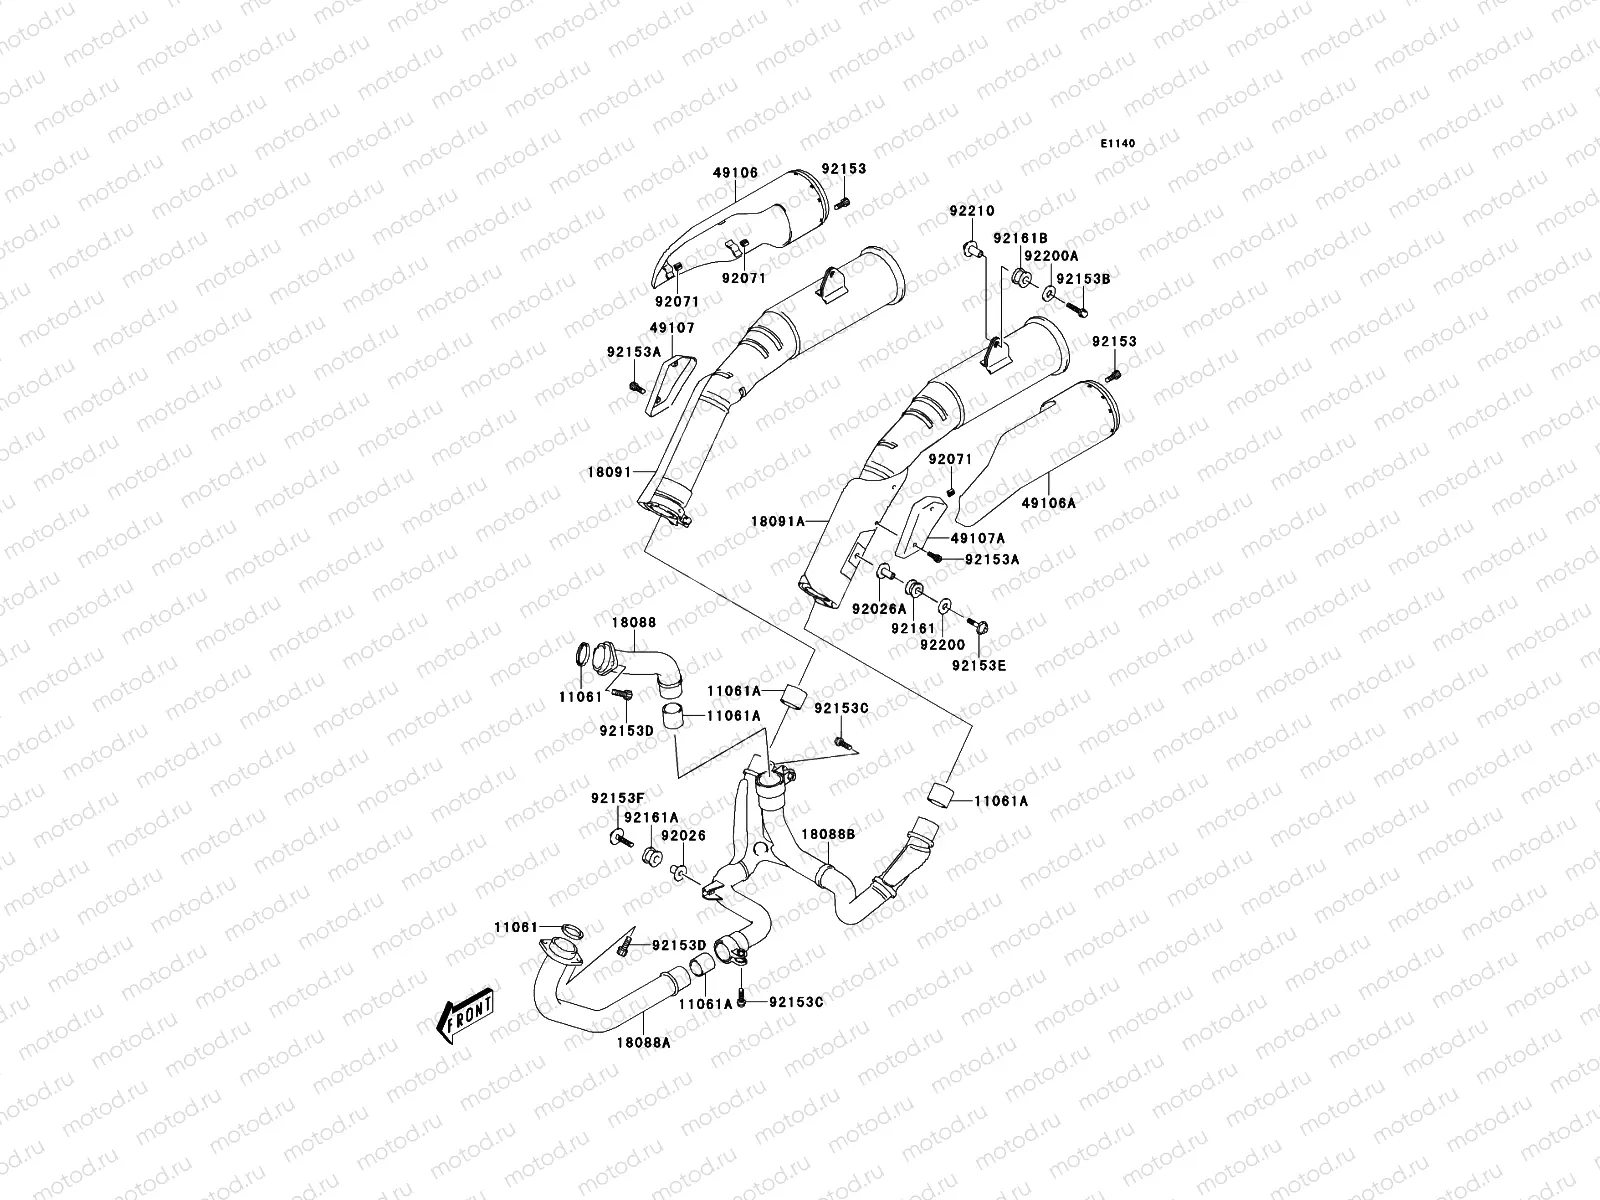 E1140
49106
92153
92210
92161B
92200A
92153B
92071
92071
49107
92153A
92153
18091
92071
49106A
18091A
49107A
92153A
92026A
92161
92200
92153E
18088
11061
92153D
11061A
11061A
92153C
11061A
92153F
92161A
92026
18088B
11061
92153D
11061A
92153C
18088A
FRONT
motod.ru